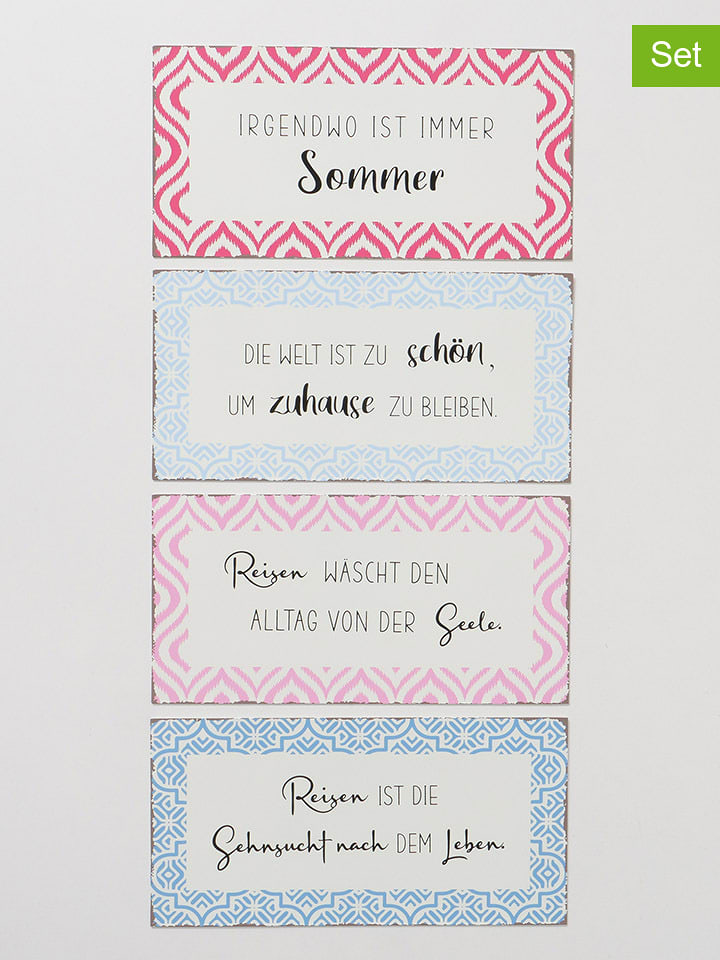 Set
IRGENDWO IST IMMER
Sommer
DIE WELT IST ZU schön,
UM zuhause ZU BLEIBEN.
Reisen WÄSCHT DEN
ALLTAG VON DER Seele.
Reisen IST DIE
Sehnsucht nach DEM Leben.